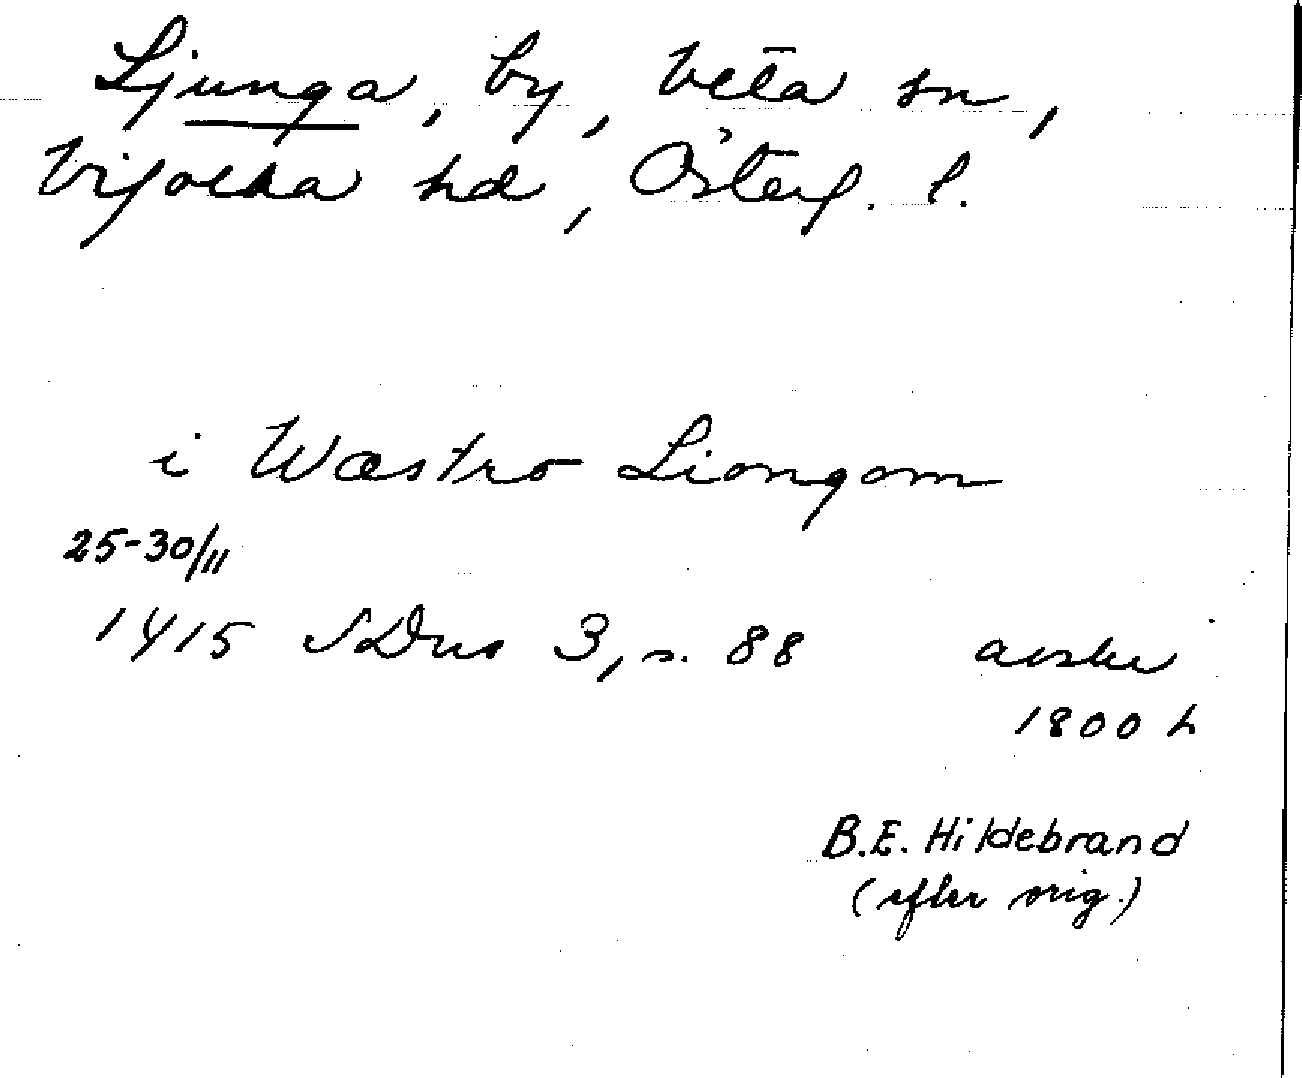 Ljunga, by, Veta sn,
Vifolka hd, Österg. l.
i Wæstro Liongom
25-30/11
1415 SDns 3, s. 88 avskr
1800 h
B.E. Hildebrand
(efter orig.)